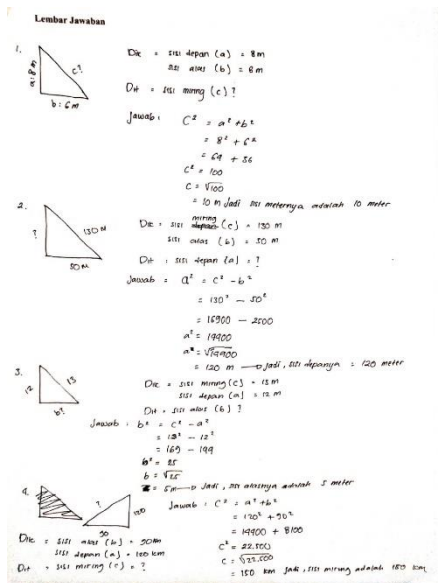 Lembar Jawaban
1.
a: 8 m
c?
b: 6 m
Dik = sisi depan (a) = 8m
sisi alas (b) = 6m
Dit = sisi miring (c) ?
Jawab : C² = a² + b²
= 8² + 6²
= 64 + 36
C² = 100
C = √100
= 10 m Jadi sisi meternya adalah 10 meter
2.
?
130 M
50 M
Dik = sisi miring (c) = 130 m
sisi alas (b) = 50 m
Dit : sisi depan (a) = ?
Jawab = a² = c² - b²
= 130² - 50²
= 16900 - 2500
a² = 14400
a = √14400
= 120 m → Jadi, sisi depanya = 120 meter
3.
12
13
b?
Dik = sisi miring (c) = 13 m
sisi depan (a) = 12 m
Dit = sisi alas (b) ?
Jawab : b² = c² - a²
= 13² - 12²
= 169 - 144
b² = 25
b = √25
= 5m → Jadi, sisi alasnya adalah 5 meter
4.
?
120
90
Dik = sisi alas (b) = 90km
sisi depan (a) = 120 km
Dit = sisi miring (c) = ?
Jawab : C² = a² + b²
= 120² + 90²
= 14400 + 8100
C² = 22.500
C = √22.500
= 150 km Jadi, sisi miring adalah 150 km